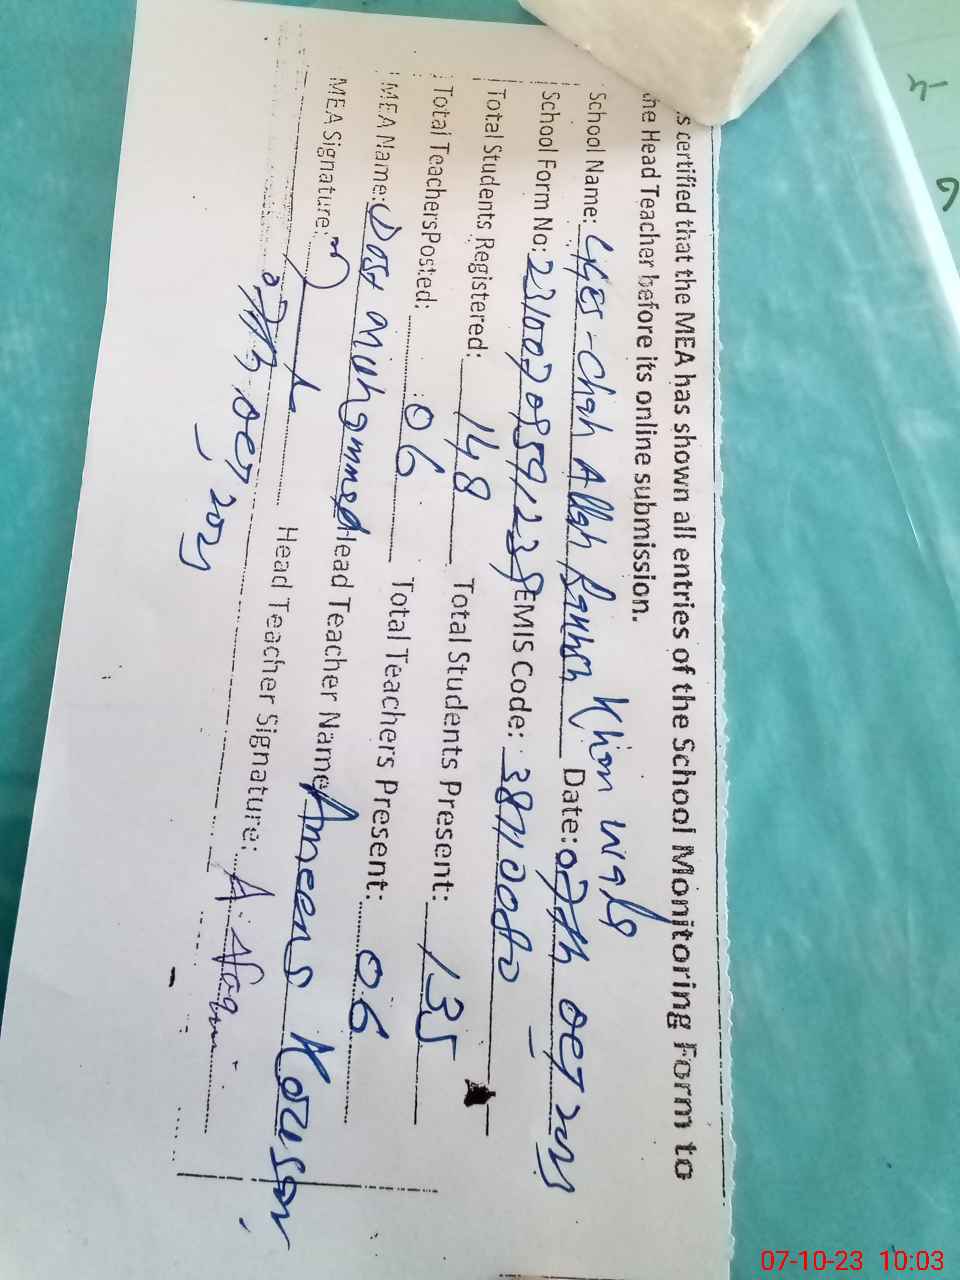 s certified that the MEA has shown all entries of the School Monitoring Form to
he Head Teacher before its online submission.
School Name: Chah Allah Khan wala Date: 07th Oct 2023
School Form No: EMIS Code:
Total Students Registered: 148 Total Students Present: 135
Total TeachersPosted: 06 Total Teachers Present: 06
MEA Name: Dost Muhammad Head Teacher Name Ameena Kousar
MEA Signature: Head Teacher Signature:
07th Oct 2023
07-10-23 10:03